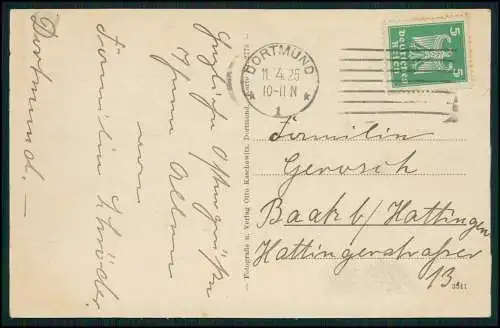 Herzliche Ostergrüße
Ihnen Allen
von
Familie Schröder
Dortmund. —
Fotografie u. Verlag Otto Kaschewitz, Dortmund,
DORTMUND
11.4.25
10-11 N
* 1 *
5 5
Deutsches
Reich
Familie
Gerosch
Baak b/ Hattingen
Hattingerstrasse
13.